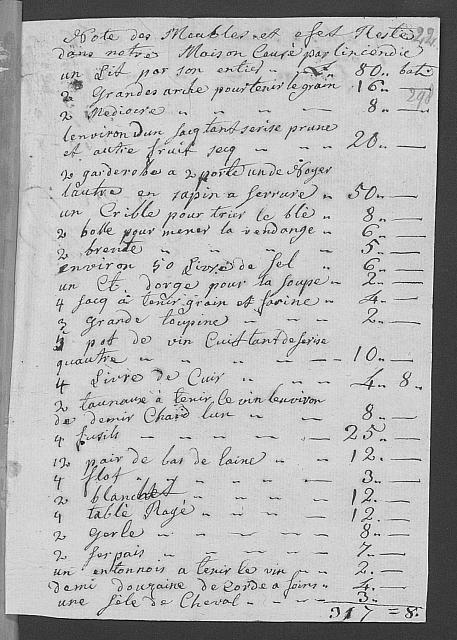 Note des Meubles et efet Resté
dans notre Maison Causé par l'incendie
un Lit por son entier 80 bat
2 Grandes arche pour tenir le grain 16
2 Mediocre 8
lenviron dun sacq tant serise prune
et autre fruit secq 20
2 garderobe a 2 porte un de Noyer
lautre en sapin a serrure 50
un Crible pour trier le blé 8
2 bosse pour mener la vendange 6
2 brente 5
environ 50 Livre de sel 6
un Ct. dorge pour la soupe 2
4 sacq à tenir grain et farine 4
2 grande toupine 2
3 pot de vin Cuit tant de serise
quautre 10
4 Livre de Cuir 4 8
2 taunaux à tenir le vin lenviron
de demir Chard lun 8
4 fusils 25
12 pair de bas de laine 12
4 flot 3
2 blanchet 12
4 table Rage 12
2 gerle 8
2 serpais 7
un entonnois a tenir le vin 2
demi douzaine de corde a foins 4
une séle de Cheval 3
317 = 8